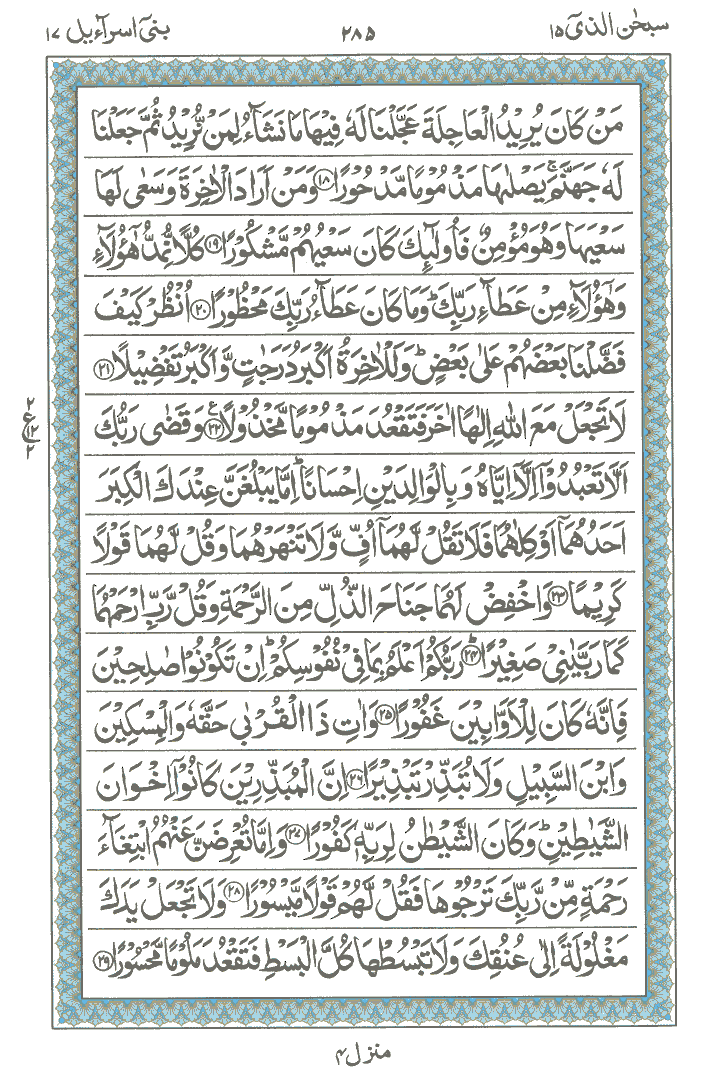 سبحٰن الذیٓ ۱۵ ۲۸۵ بنیٓ اسرآءیل ۱۷
مَنْ كَانَ يُرِيْدُ الْعَاجِلَةَ عَجَّلْنَا لَهٗ فِيْهَا مَا نَشَآءُ لِمَنْ نُّرِيْدُ ثُمَّ جَعَلْنَا
لَهٗ جَهَنَّمَ ۚ يَصْلٰىهَا مَذْمُوْمًا مَّدْحُوْرًا ۝۱۸ وَمَنْ اَرَادَ الْاٰخِرَةَ وَسَعٰى لَهَا
سَعْيَهَا وَهُوَ مُؤْمِنٌ فَاُولٰٓئِكَ كَانَ سَعْيُهُمْ مَّشْكُوْرًا ۝۱۹ كُلًّا نُّمِدُّ هٰٓؤُلَآءِ
وَهٰٓؤُلَآءِ مِنْ عَطَآءِ رَبِّكَ ؕ وَمَا كَانَ عَطَآءُ رَبِّكَ مَحْظُوْرًا ۝۲۰ اُنْظُرْ كَيْفَ
فَضَّلْنَا بَعْضَهُمْ عَلٰى بَعْضٍ ؕ وَلَلْاٰخِرَةُ اَكْبَرُ دَرَجٰتٍ وَّاَكْبَرُ تَفْضِيْلًا ۝۲۱
لَا تَجْعَلْ مَعَ اللّٰهِ اِلٰهًا اٰخَرَ فَتَقْعُدَ مَذْمُوْمًا مَّخْذُوْلًا ۝۲۲ ع وَقَضٰى رَبُّكَ
۲
ع
۱۲
۲
اَلَّا تَعْبُدُوْٓا اِلَّآ اِيَّاهُ وَبِالْوَالِدَيْنِ اِحْسَانًا ؕ اِمَّا يَبْلُغَنَّ عِنْدَكَ الْكِبَرَ
اَحَدُهُمَآ اَوْ كِلٰهُمَا فَلَا تَقُلْ لَّهُمَآ اُفٍّ وَّلَا تَنْهَرْهُمَا وَقُلْ لَّهُمَا قَوْلًا
كَرِيْمًا ۝۲۳ وَاخْفِضْ لَهُمَا جَنَاحَ الذُّلِّ مِنَ الرَّحْمَةِ وَقُلْ رَّبِّ ارْحَمْهُمَا
كَمَا رَبَّيٰنِيْ صَغِيْرًا ؕ ۝۲۴ رَبُّكُمْ اَعْلَمُ بِمَا فِيْ نُفُوْسِكُمْ ؕ اِنْ تَكُوْنُوْا صٰلِحِيْنَ
فَاِنَّهٗ كَانَ لِلْاَوَّابِيْنَ غَفُوْرًا ۝۲۵ وَاٰتِ ذَا الْقُرْبٰى حَقَّهٗ وَالْمِسْكِيْنَ
وَابْنَ السَّبِيْلِ وَلَا تُبَذِّرْ تَبْذِيْرًا ۝۲۶ اِنَّ الْمُبَذِّرِيْنَ كَانُوْٓا اِخْوَانَ
الشَّيٰطِيْنِ ؕ وَكَانَ الشَّيْطٰنُ لِرَبِّهٖ كَفُوْرًا ۝۲۷ وَاِمَّا تُعْرِضَنَّ عَنْهُمُ ابْتِغَآءَ
رَحْمَةٍ مِّنْ رَّبِّكَ تَرْجُوْهَا فَقُلْ لَّهُمْ قَوْلًا مَّيْسُوْرًا ۝۲۸ وَلَا تَجْعَلْ يَدَكَ
مَغْلُوْلَةً اِلٰى عُنُقِكَ وَلَا تَبْسُطْهَا كُلَّ الْبَسْطِ فَتَقْعُدَ مَلُوْمًا مَّحْسُوْرًا ۝۲۹
منزل ۴